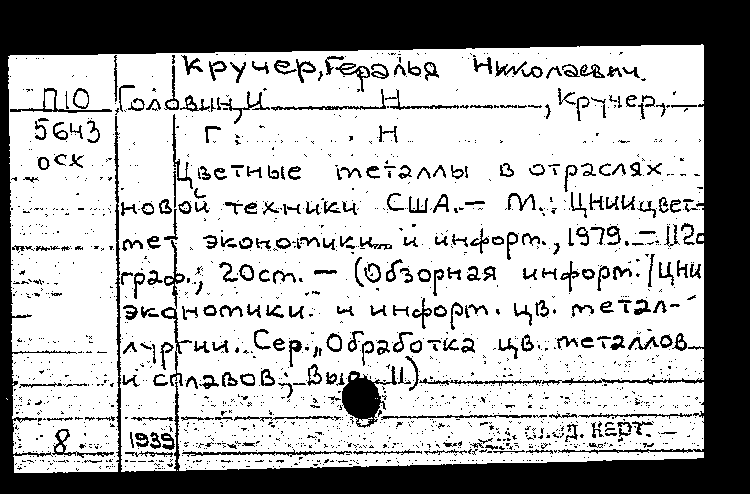 Кручер, Геральд Николаевич.
П10 Головин, И Н , Кручер,
5643 Г. Н
оск Цветные металлы в отраслях
новой техники США. — М.: ЦНИИцвет-
мет экономики и информ., 1979. — 112с
граф.; 20см. — (Обзорная информ. /ЦНИ
экономики и информ. цв. метал-
лургии. Сер. „Обработка цв. металлов
и сплавов; Вып. II)
8. 1939 КЕРТ.